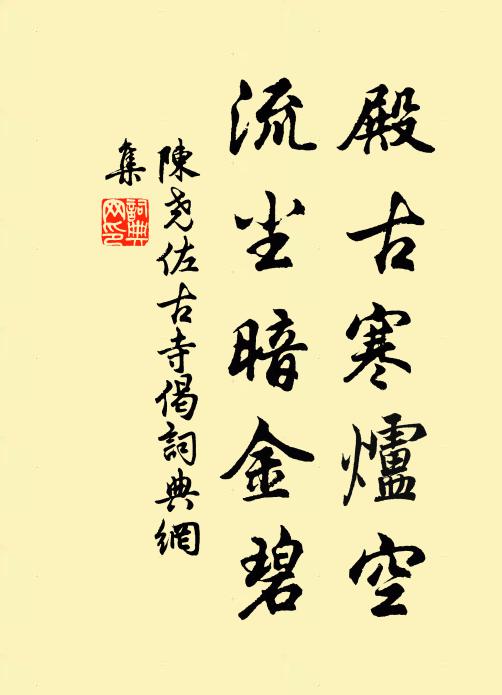 殿古寒爐空
流尘暗金碧
陳尧佐古寺偈詞典網
集
詞典
网印